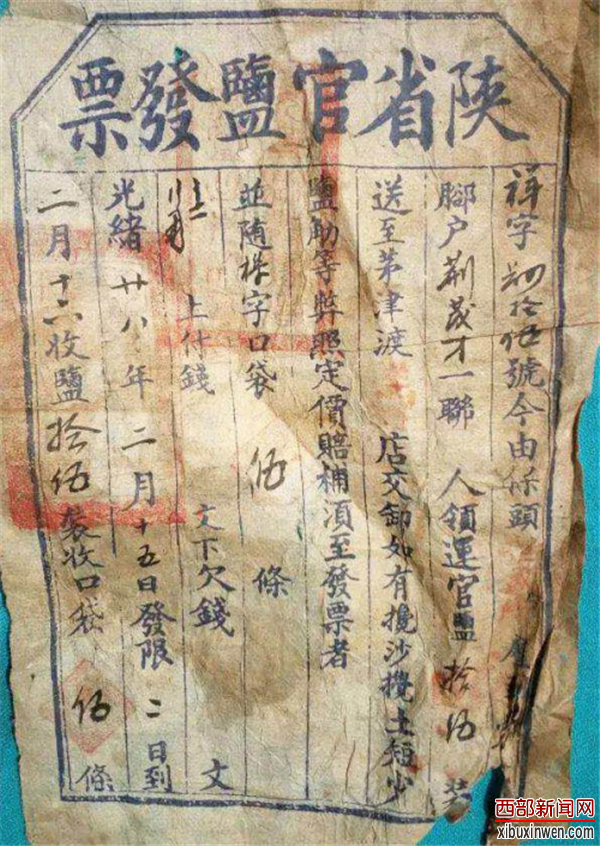 陝省官鹽發票
祥字 拾伍號今由 頭
腳户荊茂才一聯 人領運官鹽拾伍
送至茅津渡 店交卸如有攙沙攪土短少
鹽觔等弊照定價賠補湏至發票者
並随祥字口袋 伍 條
上付錢 文下欠錢 文
光緒廿八年二月十五日發限二日到
二月十六收鹽拾伍袋收口袋 伍 條
西部新闻网
xibuxinwen.com